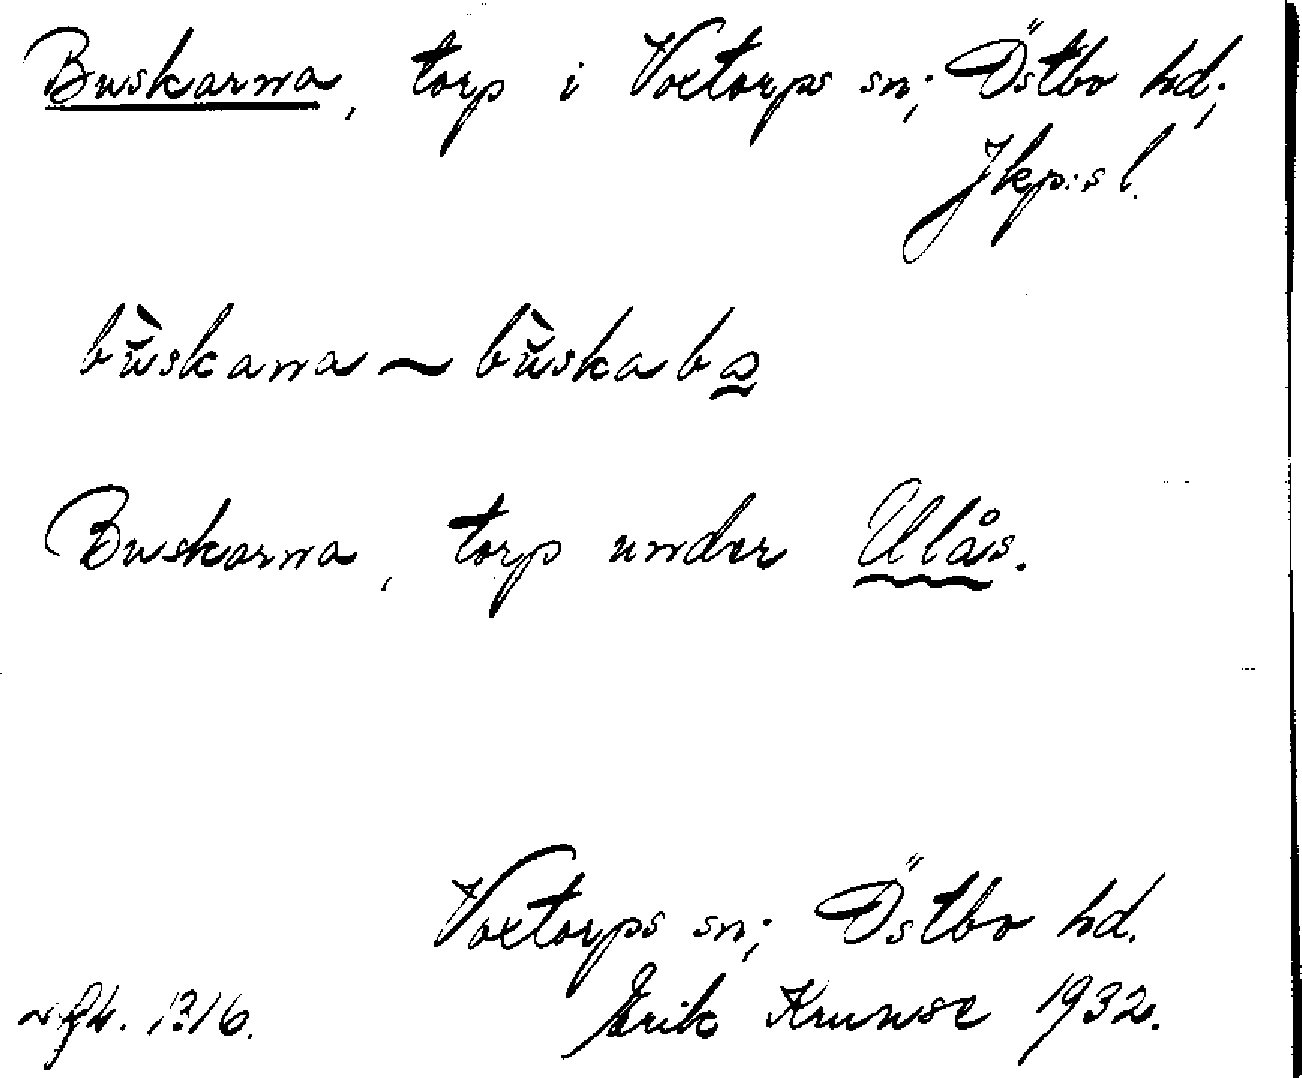 Buskarna, torp i Voxtorps sn; Östbo hd;
Jkp:s l.
bùskana ~ bùskaba
Buskarna, torp under Ulås.
Voxtorps sn; Östbo hd.
1316. Erik Krunse 1932.